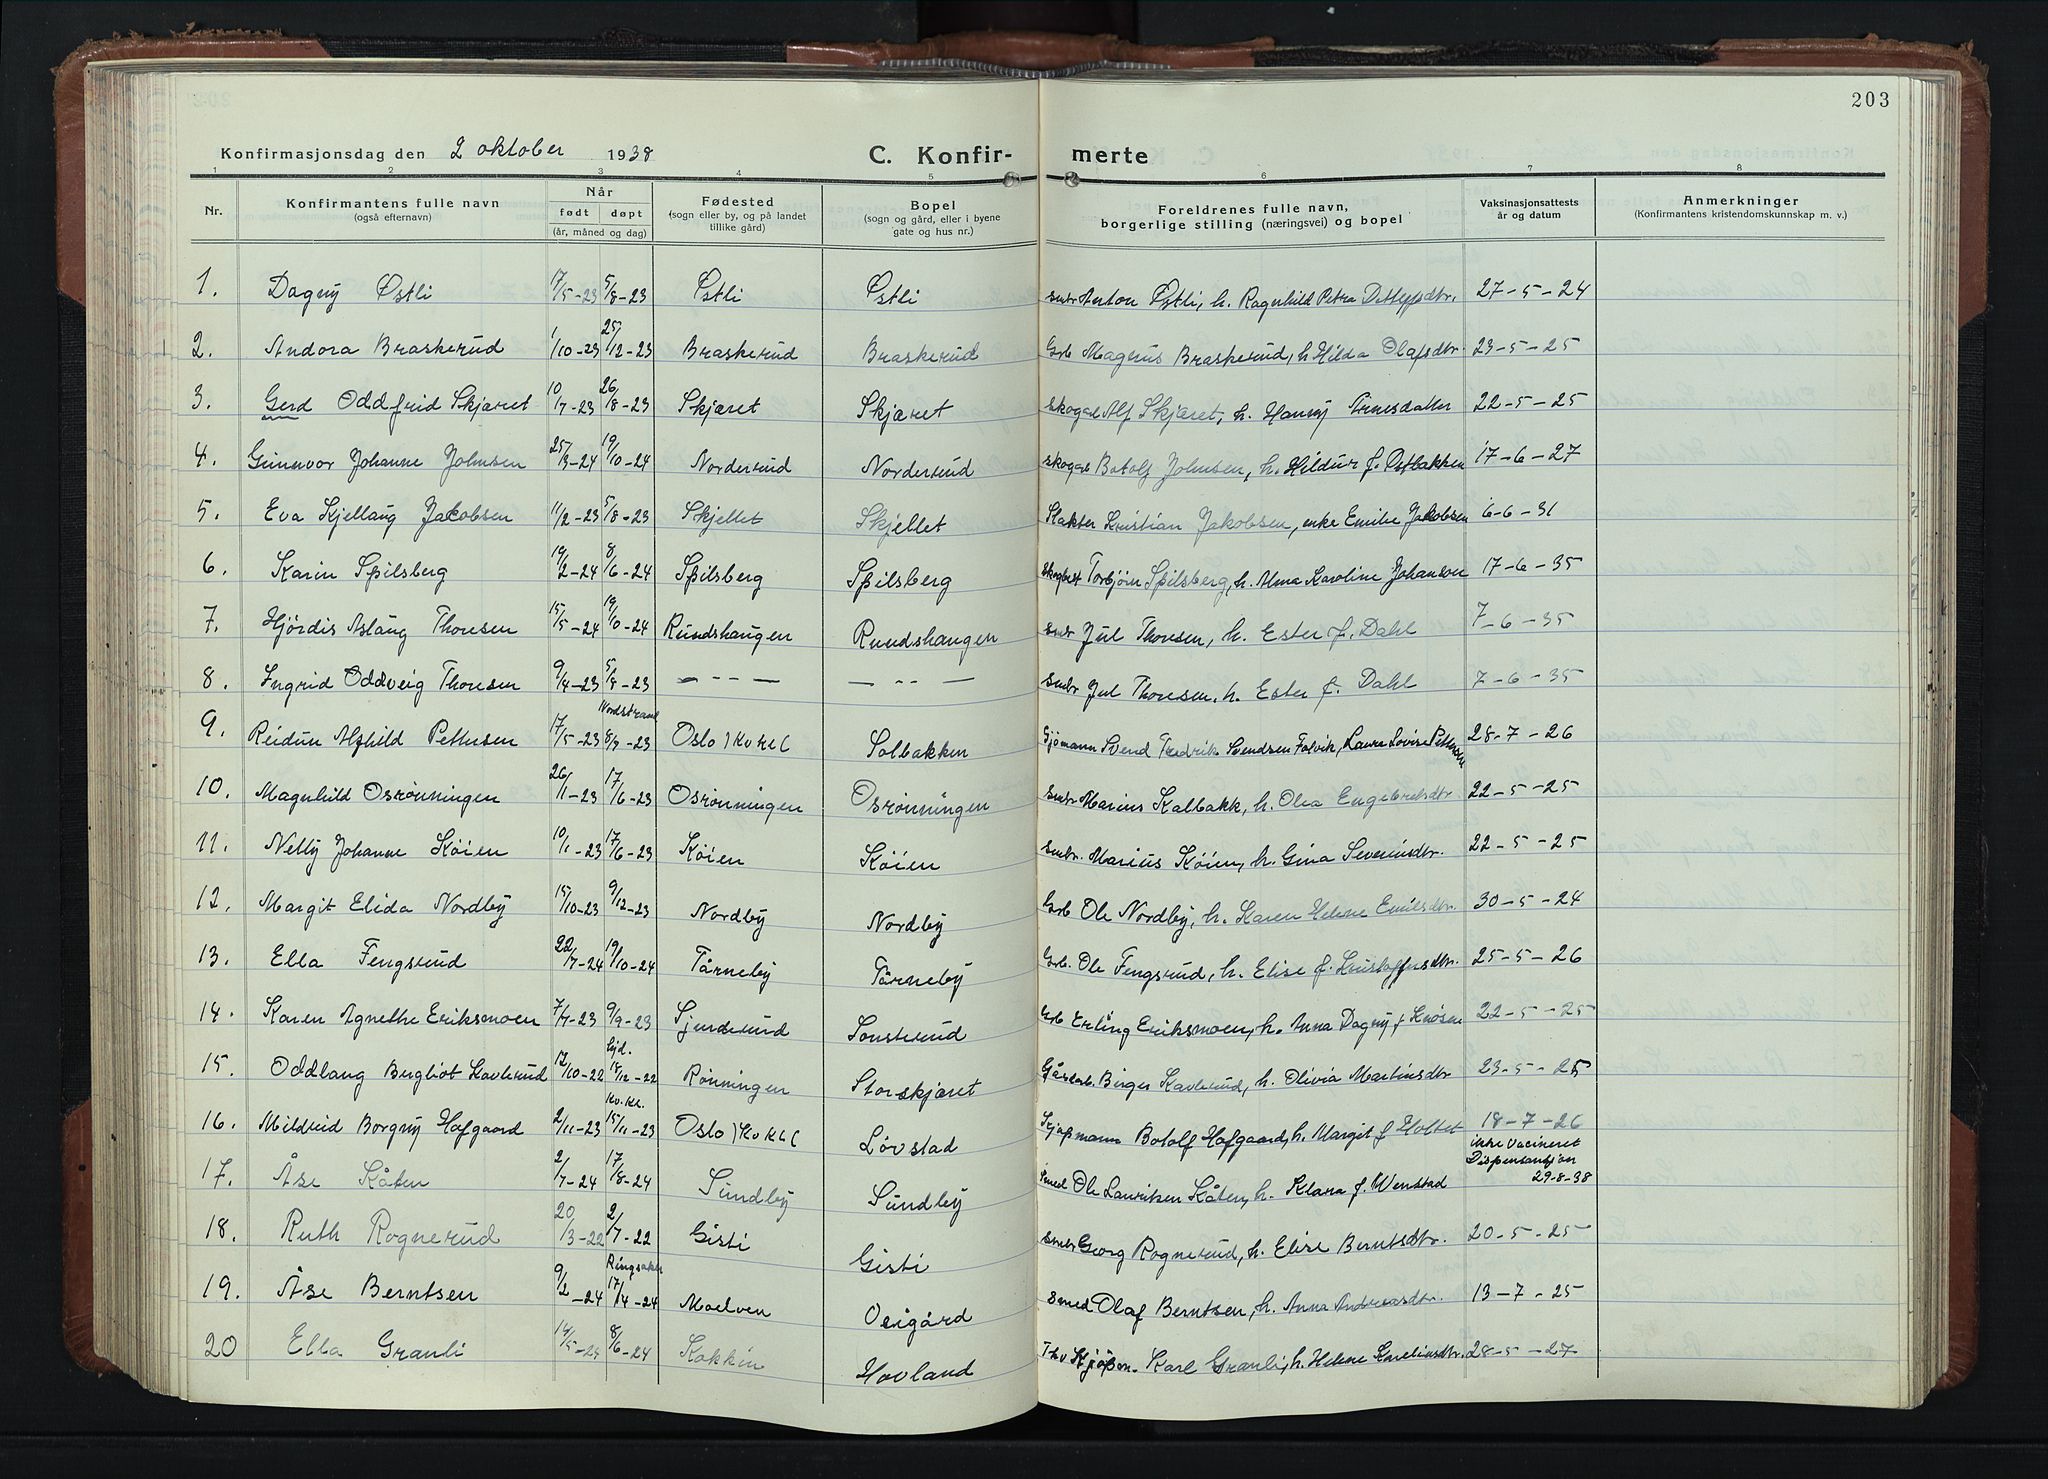 203
Konfirmasjonsdag den 2 oktober 1938 C. Konfir- merte
1 2 3 4 5 6 7 8
Nr. Konfirmantens fulle navn (også efternavn) Når født døpt (år, måned og dag) Fødested (sogn eller by, og på landet tillike gård) Bopel (sogn og gård, eller i byene gate og hus nr.) Foreldrenes fulle navn, borgerlige stilling (næringsvei) og bopel Vaksinasjonsattests år og datum Anmerkninger (Konfirmantens kristendomskunnskap m. v.)
1. Dagny Østli 17/5-23 5/8-23 Østli Østli Smbr Anton Østli, h. Ragnhild Petra Detlefsdtr. 27-5-24
2. Andora Braskerud 1/10-23 25/12-23 Braskerud Braskerud Grb Magnus Braskerud, h Hilda Olafsdtr. 23-5-25
3. Gerd Oddfrid Skjæret 10/7-23 26/8-23 Skjæret Skjæret Alf Skjæret, h. Hansy Arnesdatter 22-5-25
4. Gunnvor Johanne Johnsen 25/3-24 19/10-24 Norderud Norderud Botolf Johnsen, h. Hildur f. Østbakken 17-6-27
5. Eva Kjellaug Jakobsen 11/2-23 5/8-23 Skjellet Skjellet Kristian Jakobsen, enke Emilie Jakobsen 6-6-31
6. Karin Spilsberg 19/2-24 8/6-24 Spilsberg Spilsberg Torbjørn Spilsberg, h. Alma Karoline Johanson 17-6-35
7. Hjördis Aslaug Thoresen 15/5-24 19/10-24 Rundshaugen Rundshaugen Smbr Jul Thoresen, h. Ester f. Dahl 7-6-35
8. Ingrid Oddveig Thoresen 9/4-23 5/8-23 — -- — — -- — Smbr Jul Thoresen, h. Ester f. Dahl 7-6-35
Nordstrand
9. Reidun Alfhild Pettersen 17/5-23 8/9-23 Oslo )Kv Kl( Solbakken Sjømann Svend Fredrik Svendsen Falvik, Laura Lovise Pettersen 28-7-26
10. Magnhild Osrønningen 26/1-23 17/6-23 Osrønningen Osrønningen Smbr Marius Kalbakk, h. Olea Engebretsdtr 22-5-25
11. Nelly Johanne Köien 10/1-23 17/6-23 Köien Köien Smbr. Marius Köien, h. Gina Severinsdtr. 22-5-25
12. Margit Elida Nordby 15/10-23 9/12-23 Nordby Nordby Grb Ole Nordby, h. Karen Helene Emilsdtr. 30-5-24
13. Ella Fengsrud 22/7-24 19/10-24 Tårneby Tårneby Grb. Ole Fengsrud, h. Elise f. Kristoffersdtr. 25-5-26
14. Karen Agnethe Eriksmoen 7/7-23 9/9-23 Sjuderud Sonsterud Grb Erling Eriksmoen, h. Anna Dagny f Knösen 22-5-25
hjd.
15. Oddlaug Bergliot Kavlerud 17/10-22 18/12-22 Rönningen Storskjæret Gårdarb. Birger Kavlerud, h. Olivia Martinsdtr 23-5-25
Kv. Kl.
16. Mildrid Borgny Hofgaard 2/11-23 15/11-23 Oslo )Kv Kl( Lövstad Botolf Hofgaard, h. Margit f Holtet 18-7-26
17. Åse Kåten 2/7-24 17/8-24 Sundby Sundby Smed Ole Lauritzen Kåten, h. Klara f. Wenstad ikke vacineret Dispensasjon 29-8-38
18. Ruth Rognerud 20/3-22 2/7-22 Gisti Gisti Smbr Georg Rognerud, h. Elise Berntsdtr. 20-5-25
Ringsaker
19. Åse Berntsen 9/2-24 17/4-24 Moelven Overgård Smed Olaf Berntsen, h. Anna Andreasdtr. 13-7-25
20 Ella Granli 14/5-24 8/6-24 Kokkin Hovland Karl Granli, h. Helene Kareliusdtr. 28-5-27